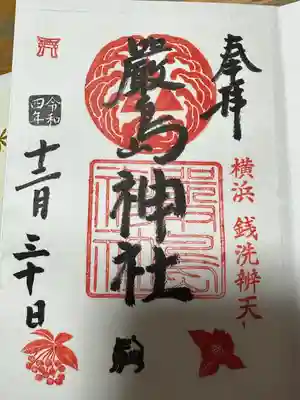 奉拝
横浜 銭洗辨天
嚴島神社
令和四年
十二月三十日